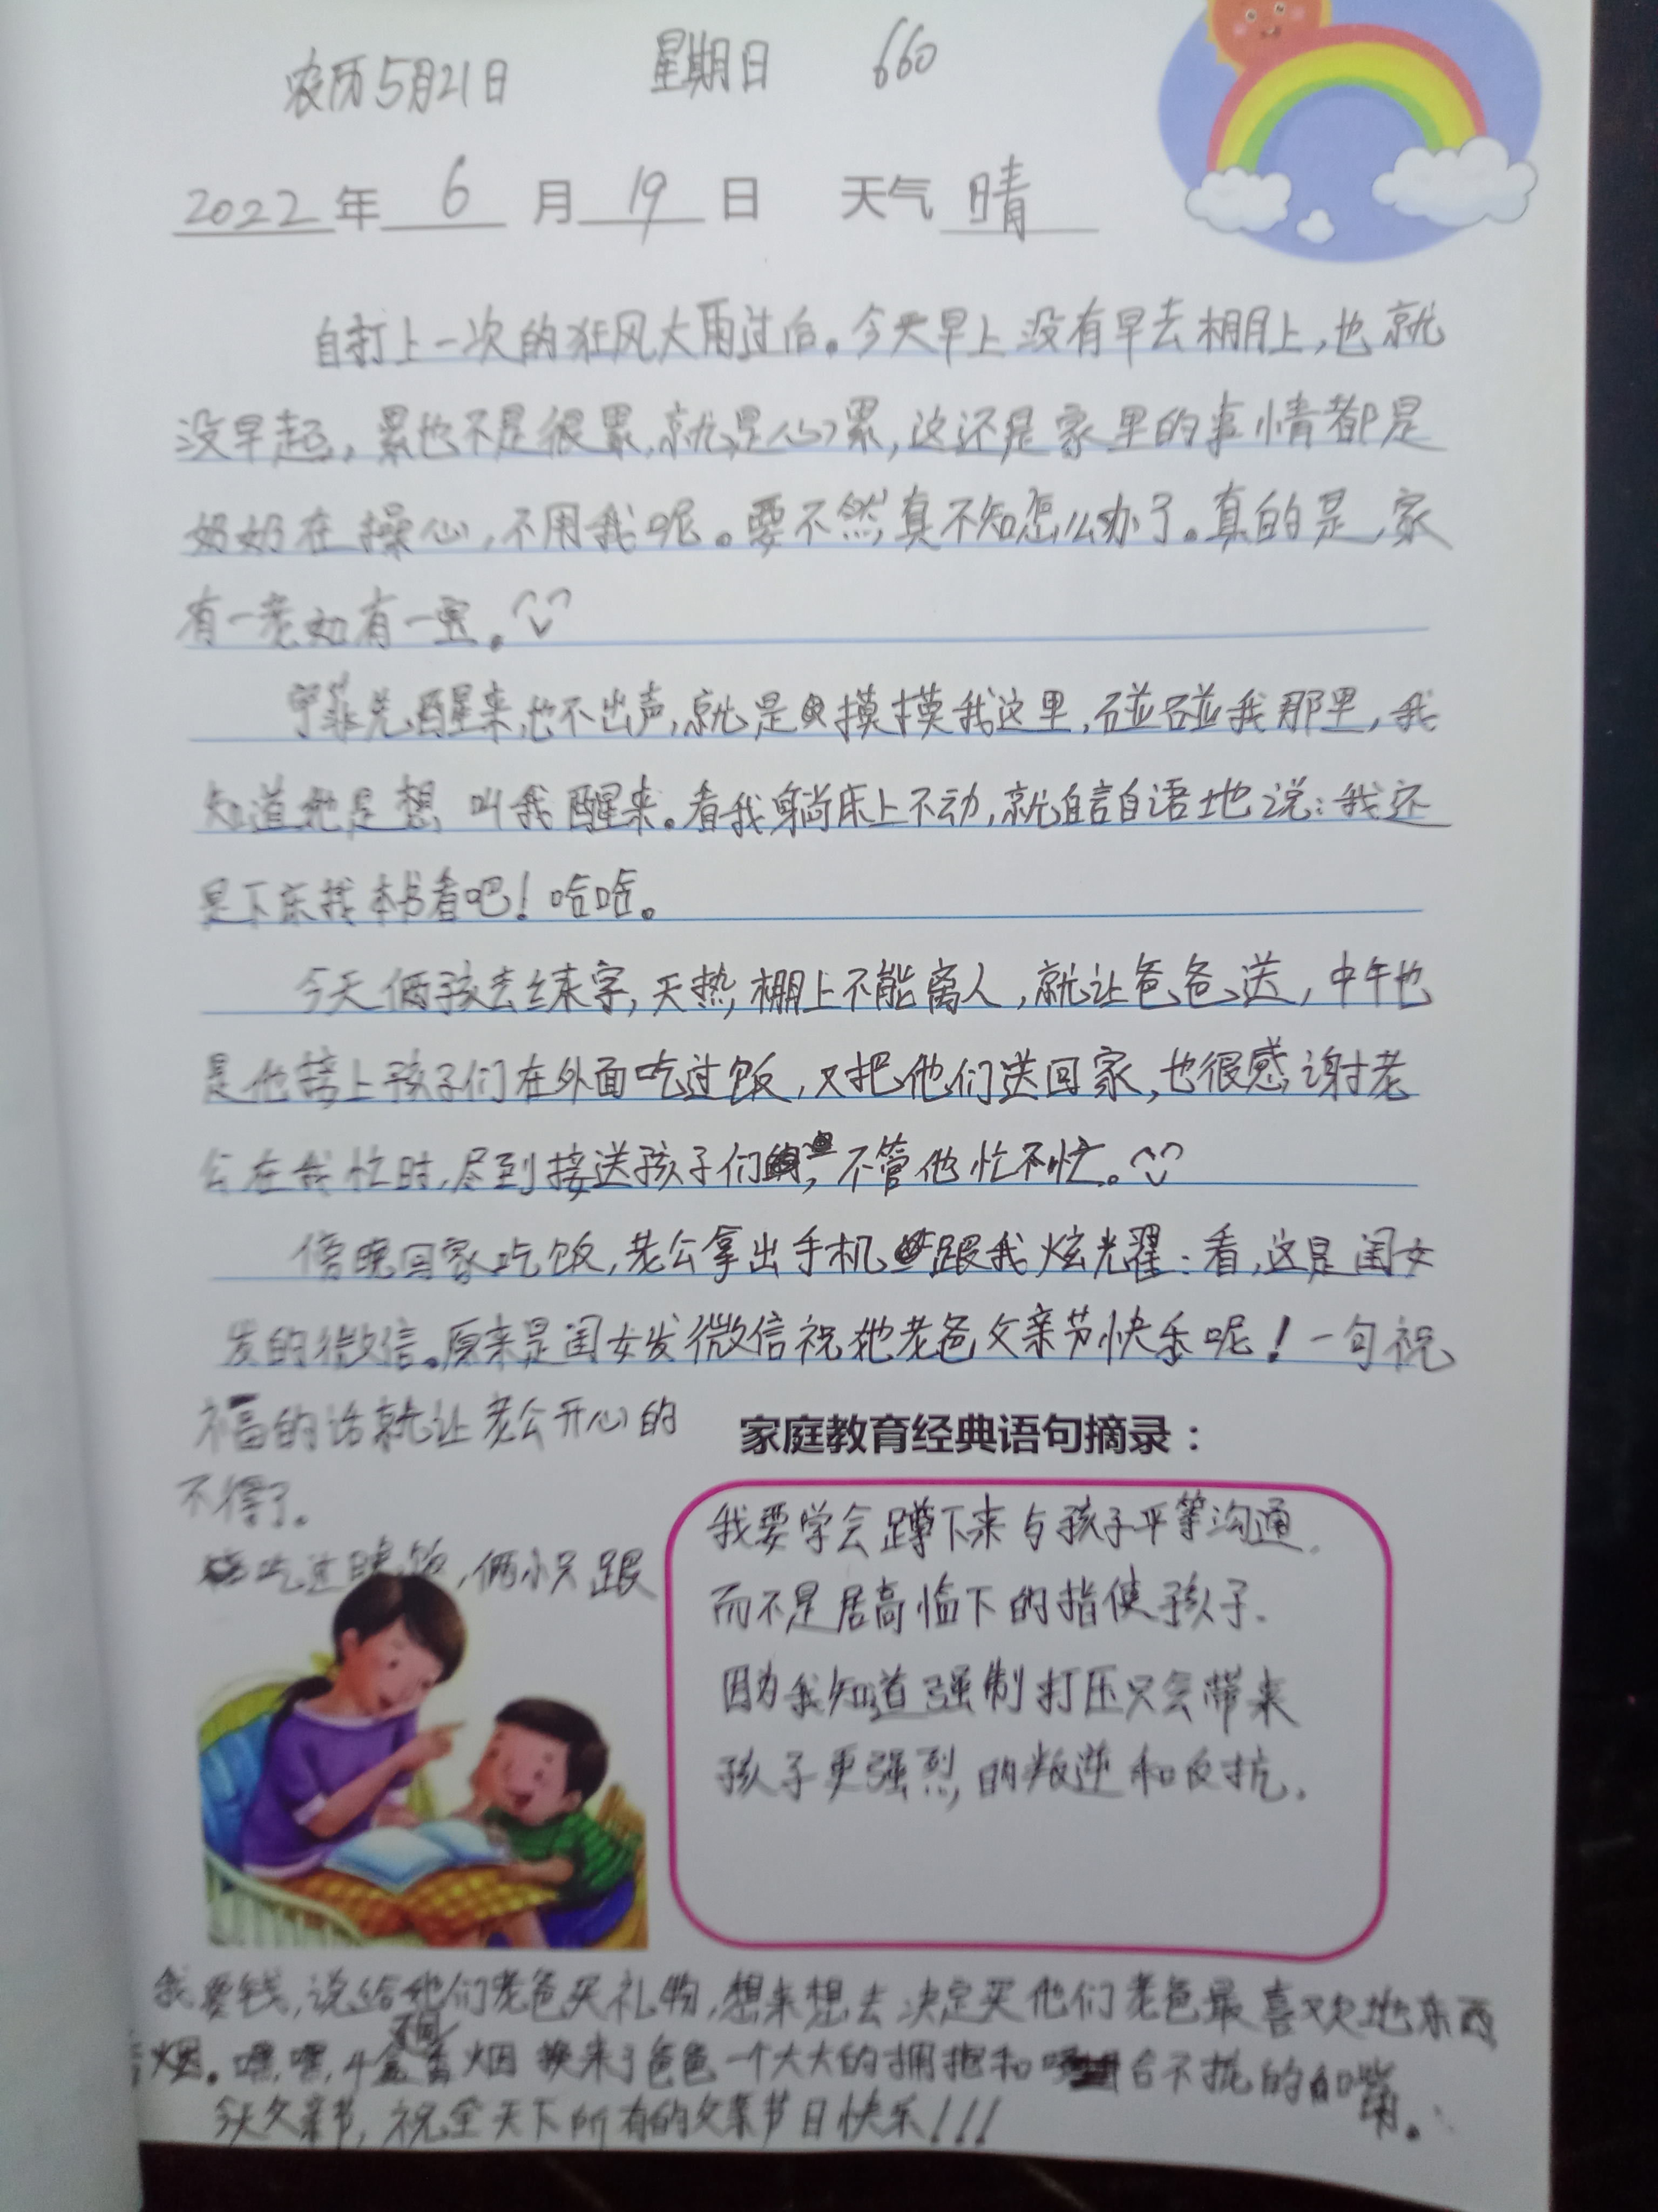 农历5月21日 星期日 660
2022年 6 月 19 日 天气 晴
自打上一次的狂风大雨过后。今天早上没有早去棚上,也就
没早起,累也不是很累,就是心累,这还是家里的事情都是
奶奶在操心,不用我呢。要不然真不知怎么办了。真的是,家
有一老如有一宝。
先醒来,也不出声,就是摸摸我这里,碰碰我那里,我
知道她是想叫我醒来。看我躺床上不动,就自言自语地说:我还
是下床找本书看吧!哈哈。
今天俩孩去练字,天热,棚上不能离人,就让爸爸送,中午也
是他接上孩子们在外面吃过饭,又把他们送回家,也很感谢老
公在我忙时,尽到接送孩子们,不管他忙不忙。
傍晚回家吃饭,老公拿出手机跟我炫光耀:看,这是闺女
发的微信。原来是闺女发微信祝她老爸父亲节快乐呢!一句祝
福的话就让老公开心的
不得了。
吃过晚饭,俩小只跟
家庭教育经典语句摘录:
我要学会蹲下来与孩子平等沟通.
而不是居高临下的指使孩子.
因为我知道强制打压只会带来
孩子更强烈的叛逆和反抗.
我要钱,说给他们老爸买礼物,想来想去决定买他们老爸最喜欢地东西
烟。嘿,嘿,4盒烟换来了爸爸一个大大的拥抱和不拢的嘴。
今天父亲节,祝全天下所有的父亲节日快乐!!!